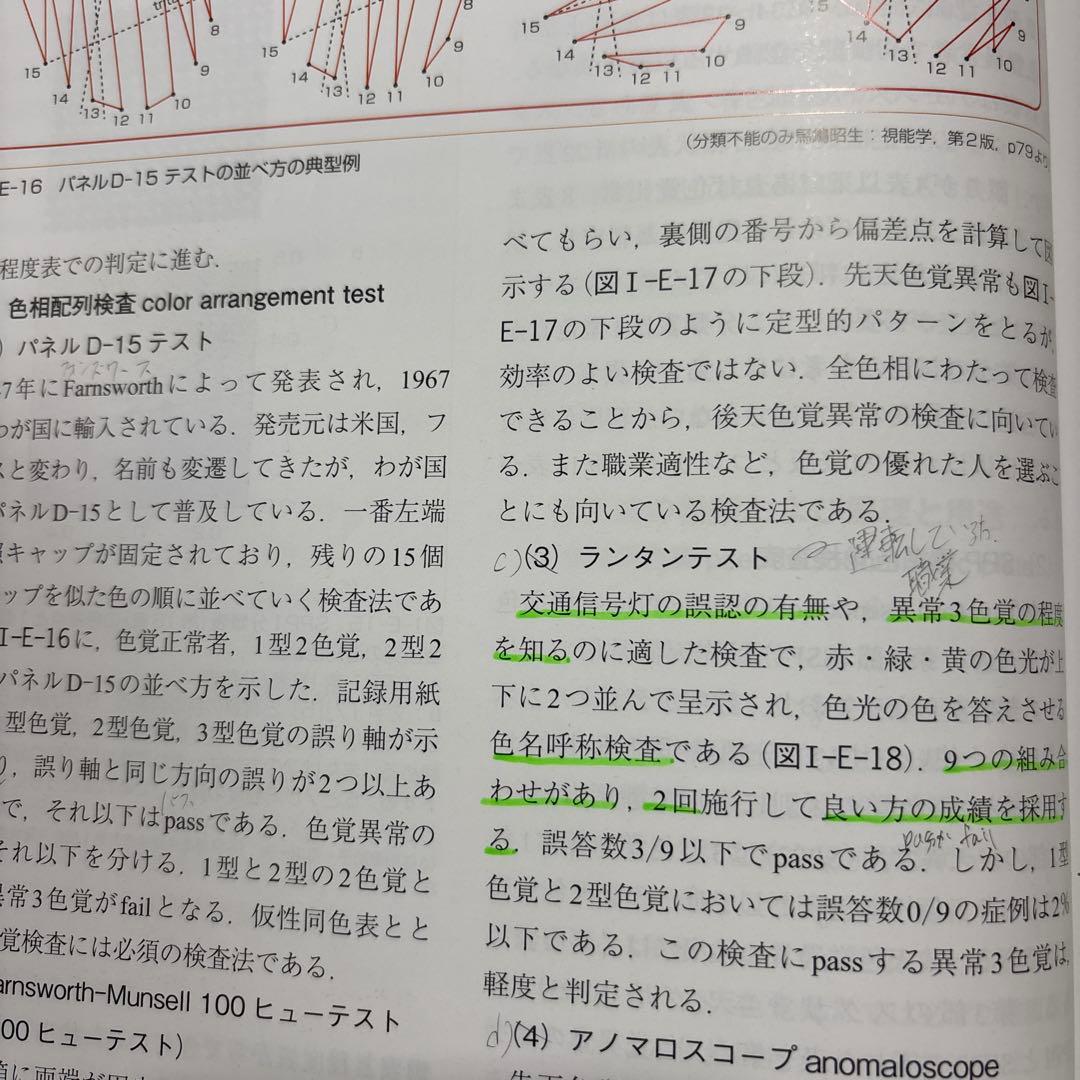 15
14
13
12
11
10
9
8
15
14
13
12
11
10
9
8
15
14
13
12
11
10
9
14
13
12
11
10
9
(分類不能のみ 昭生：視能学，第2版，p79より
E-16 パネルD-15 テストの並べ方の典型例
程度表での判定に進む．
色相配列検査 color arrangement test
) パネルD-15テスト
ファンスワース
7年にFarnsworthによって発表され，1967
わが国に輸入されている．発売元は米国，フ
スと変わり，名前も変遷してきたが，わが国
パネルD-15として普及している．一番左端
照キャップが固定されており，残りの15個
ャップを似た色の順に並べていく検査法であ
I-E-16に，色覚正常者，1型2色覚，2型2
パネルD-15の並べ方を示した．記録用紙
型色覚，2型色覚，3型色覚の誤り軸が示
り，誤り軸と同じ方向の誤りが2つ以上あ
で，それ以下はpassである．色覚異常の
それ以下を分ける．1型と2型の2色覚と
異常3色覚がfailとなる．仮性同色表とと
覚検査には必須の検査法である．
arnsworth-Munsell 100 ヒューテスト
00 ヒューテスト)
箱に両端が固
べてもらい，裏側の番号から偏差点を計算して図
示する(図I-E-17の下段)．先天色覚異常も図I-
E-17の下段のように定型的パターンをとるが，
効率のよい検査ではない．全色相にわたって検査
できることから，後天色覚異常の検査に向いてい
る．また職業適性など，色覚の優れた人を選ぶこ
とにも向いている検査法である．
c) (3) ランタンテスト
運転している
職業
交通信号灯の誤認の有無や，異常3色覚の程度
を知るのに適した検査で，赤・緑・黄の色光が上
下に2つ並んで呈示され，色光の色を答えさせる
色名呼称検査である(図I-E-18)．9つの組み合
わせがあり，2回施行して良い方の成績を採用す
passか fail
る．誤答数3/9以下でpassである．しかし，1型
色覚と2型色覚においては誤答数0/9の症例は2%
以下である．この検査にpassする異常3色覚は，
軽度と判定される．
d) (4) アノマロスコープ anomaloscope